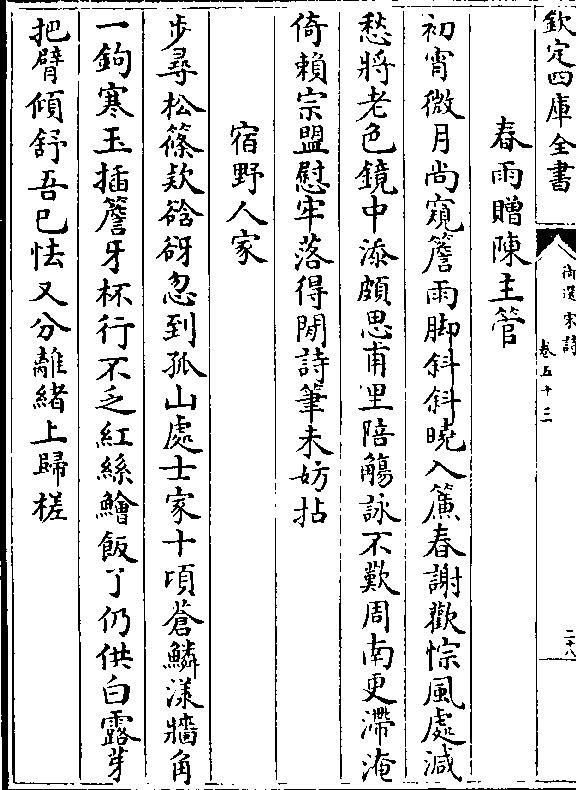 欽定四庫全書
御選宋詩
卷五十三
二十八
春雨贈陳主管
初宵微月尚窺簷雨脚斜斜曉入簾春謝歡悰風處減
愁將老色鏡中添頗思甫里陪觴詠不歎周南更滯淹
倚賴宗盟慰牢落得閒詩筆未妨拈
宿野人家
步尋松篠欵谽谺忽到孤山處士家十頃蒼鱗漾牆角
一鉤寒玉插簷牙杯行不乏紅絲鱠飯了仍供白露芽
把臂傾舒吾已怯又分離緒上歸槎